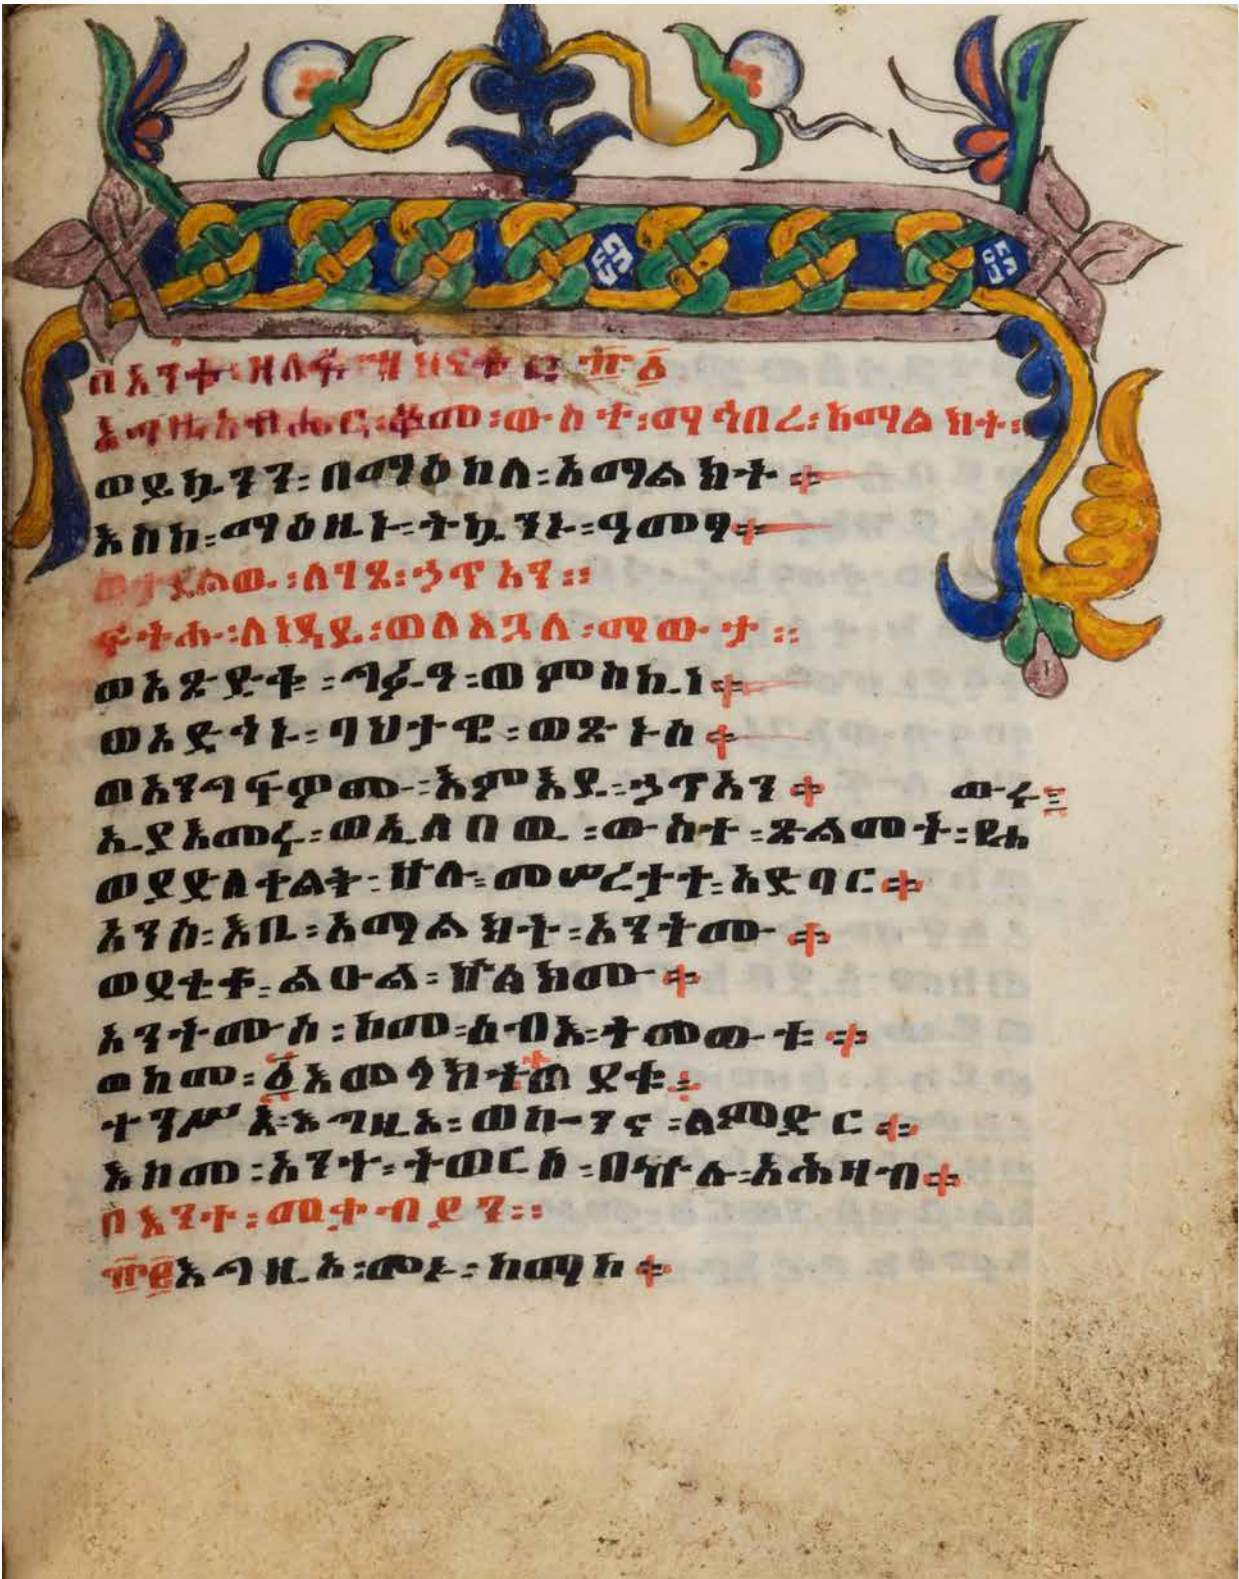 በእንተ፡ዘለፋ፡ ፹፩
እግዚአብሔር፡ቆመ፡ውስተ፡ማኅበረ፡አማልክት፡
ወይኴንን፡በማዕከለ፡አማልክት።
እስከ፡ማዕዜኑ፡ትኴንኑ፡ዓመፃ።
ወታደልው፡ለገጸ፡ኃጥአን።
ፍትሑ፡ለነዳይ፡ወለእጓለ፡ማውታ።
ወአጽድቁ፡ግፉዓ፡ወምስኪነ።
ወአድኅኑ፡ባህታዌ፡ወጽኑስ።
ወአንግፍዎሙ፡እምእደ፡ኃጥአን። ውሩ፤
ኢያእመሩ፡ወኢለበዉ፡ውስተ፡ጽልመት፡የሐ
ወያድለቀልቅ፡ኵሉ፡መሠረታተ፡አድባር።
አንሰ፡እቤ፡አማልክት፡አንትሙ።
ወደቂቀ፡ልዑል፡ኵልክሙ።
አንትሙሰ፡ከመ፡ሰብእ፡ትመውቱ።
ወከመ፡፩
ተንሥእ፡እግዚኦ፡ወኰንና፡ለምድር።
እስመ፡አንተ፡ትወርስ፡በኵሉ፡አሕዛብ።
በእንተ፡መቃብያን።
፹፪እግዚኦ፡መኑ፡ከማከ።